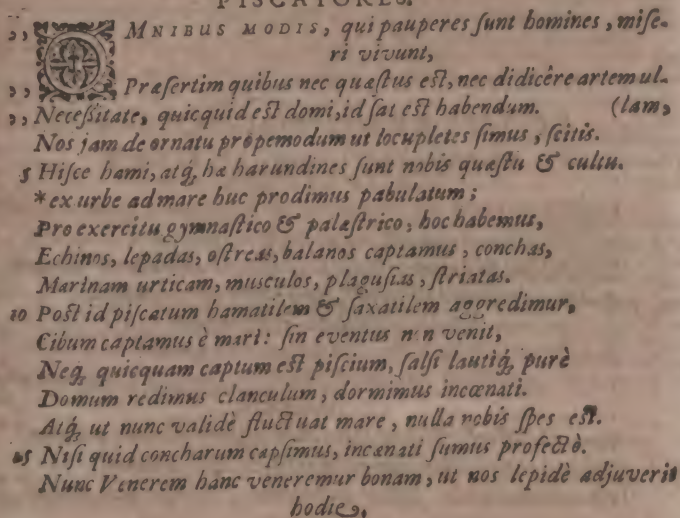 PISCATORES.
,, OMNIBUS MODIS, qui pauperes ſunt homines, miſe-
ri vivunt,
,, Præſertim quibus nec quæſtus eſt, nec didicêre artem ul-
,, Neceſsitate, quicquid eſt domi, id ſat eſt habendum. (lam,
Nos jam de ornatu propemodum ut locupletes ſimus, ſcitis.
5 Hiſce hami, atq́, hæ harundines ſunt nobis quæſtu & cultu.
*ex urbe ad mare huc prodimus pabulatum;
Pro exercitu gymnaſtico & palæſtrico, hoc habemus,
Echinos, lepadas, oſtreas, balanos captamus, conchas,
Marinam urticam, muſculos, plaguſias, ſtriatas.
10 Poſt id piſcatum hamatilem & ſaxatilem aggredimur,
Cibum captamus è mari: ſin eventus non venit,
Neq́, quicquam captum eſt piſcium, ſalſi lautiq́, purè
Domum redimus clanculum, dormimus incœnati.
Atq́, ut nunc validè fluctuat mare, nulla nobis ſpes eſt.
15 Niſi quid concharum capſimus, incœnati ſumus profectò.
Nunc Venerem hanc veneremur bonam, ut nos lepidè adjuverit
hodie,